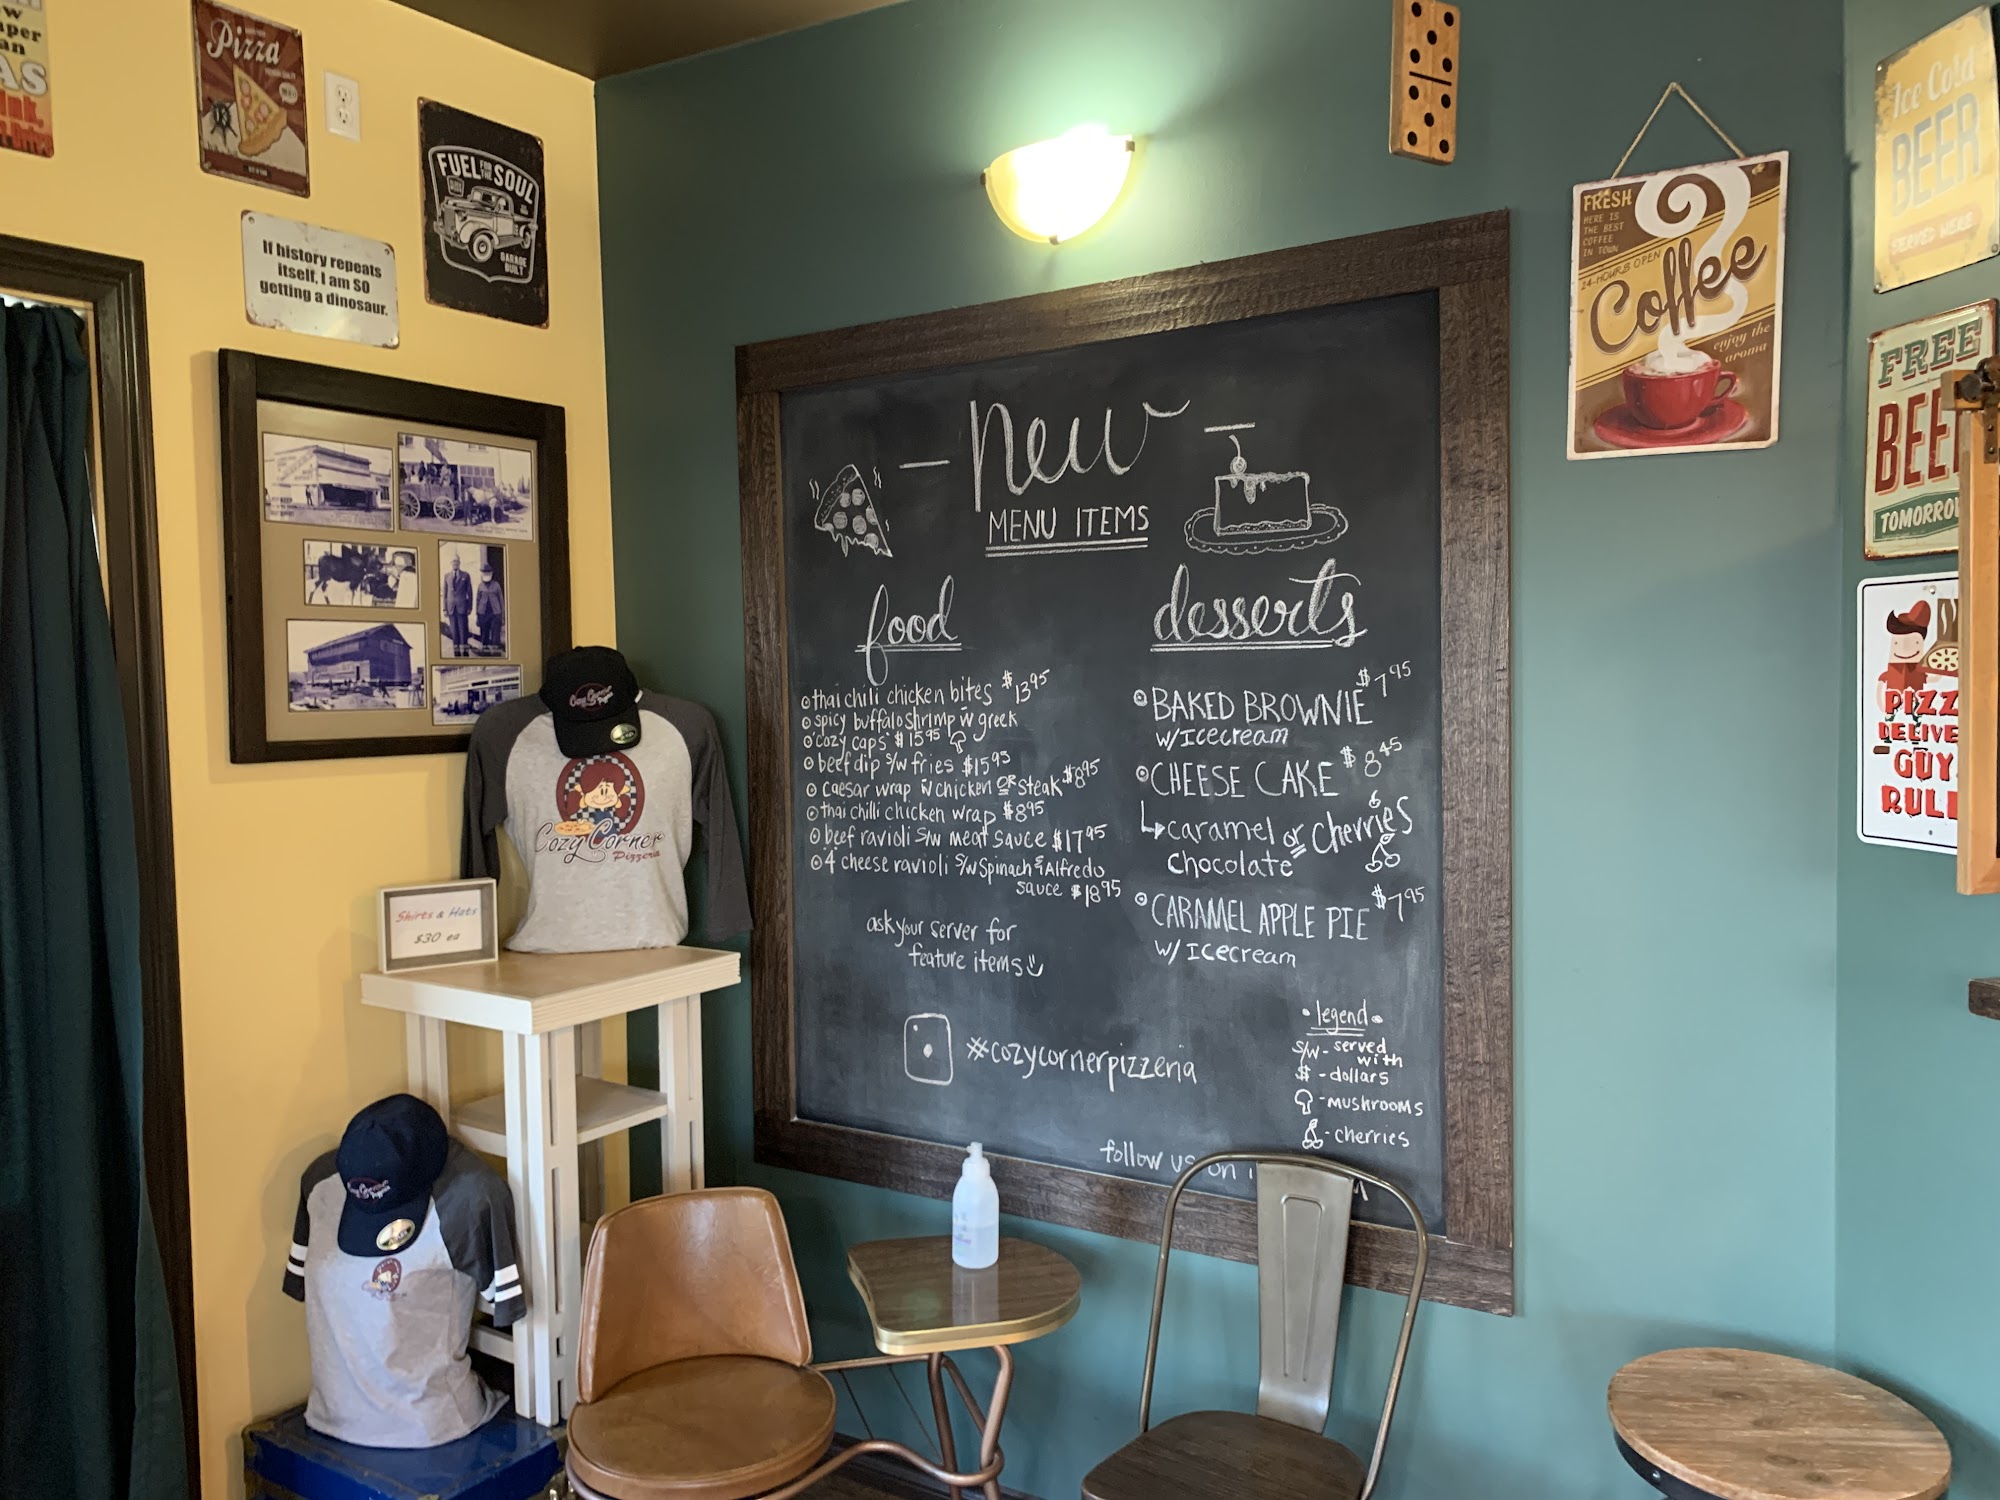 Pizza
FUEL FOR THE SOUL
GARAGE
BUILT
If history repeats
itself, I am SO
getting a dinosaur.
Cozy Corner
Pizzeria
Shirts & Hats
$30 ea
- new -
MENU ITEMS
food
thai chili chicken bites $13.95
spicy buffalo shrimp w greek
'cozy caps' $15.95
beef dip s/w fries $15.95
caesar wrap w chicken OR steak $8.95
thai chilli chicken wrap $8.95
beef ravioli s/w meat sauce $17.95
4 cheese ravioli s/w Spinach & Alfredo
sauce $18.95
ask your server for
feature items
#cozycornerpizzeria
desserts
BAKED BROWNIE $7.95
w/ Icecream
CHEESE CAKE $8.45
caramel or cherries
chocolate
CARAMEL APPLE PIE $7.95
w/ Icecream
legend
s/w - served
with
$ - dollars
- mushrooms
- cherries
follow us on
FRESH
HERE IS
THE BEST
COFFEE
IN TOWN
24-HOURS OPEN
Coffee
enjoy the
aroma
Ice Cold
BEER
SERVED HERE
FREE
BEE
TOMORRO
PIZZ
DELIVE
GUY
RUL